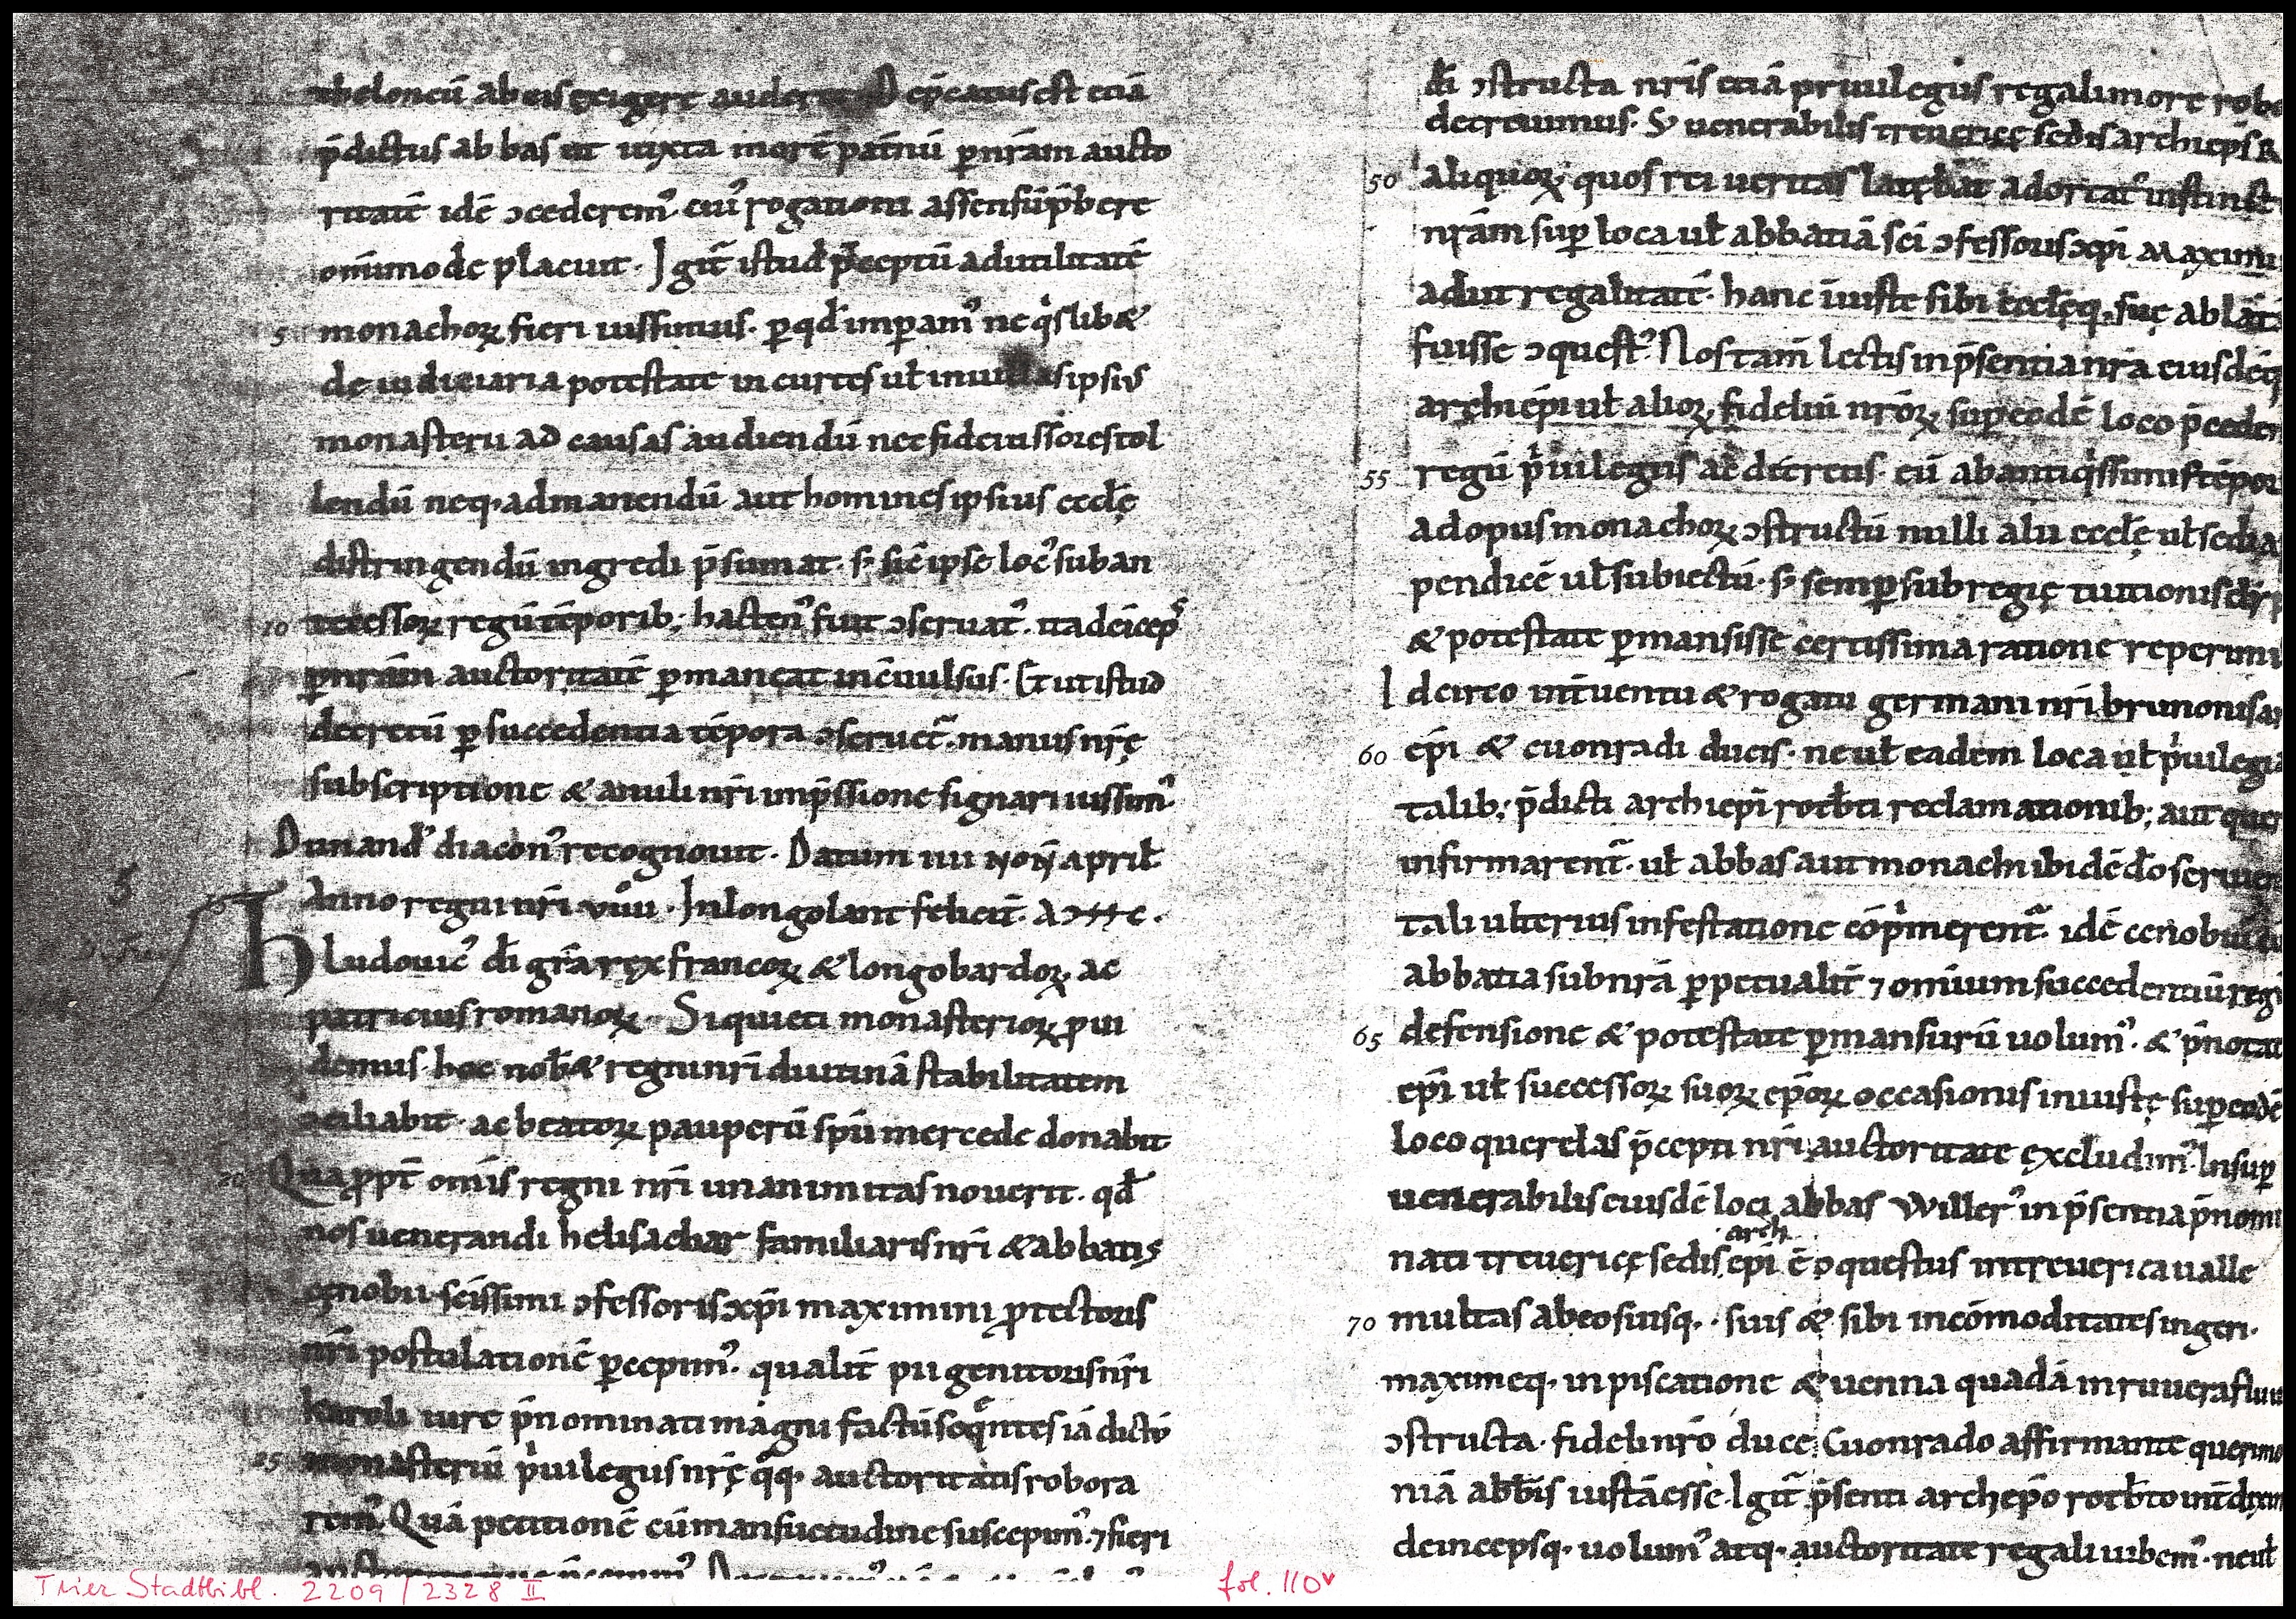 theloneũ ab eis exigere auderet Dep̃catus est etiã
p̃dictus abbas ut iuxta morẽ pat̃nũ ꝑ nr̃am aucto
ritatẽ idẽ ꝯcederemꝰ. cuiꝰ rogationi assensũ p̃bere
om̃imode placuit. Igit̃ istud p̃ceptũ ad utilitatẽ
5 monachoꝝ fieri iussimus. ꝑ qd̃ imꝑamꝰ ne qͥslib&
de iudiciaria potestate in curtes ul̃ in uillas ipsiꝰ
monasterii ad causas audiendũ nec fideiussores tol
lendũ neq; ad manendũ aut homines ipsius eccłę
distringendũ ingredi p̃sumat. s; sic̃ ipse locꝰ sub an
10 tecessoꝝ regũ tẽporib; hactenꝰ fuit ꝯseruatꝰ. ita deĩcep̃s
ꝑ nr̃am auctoritatẽ ꝑmaneat incõuulsus. Et ut istud
decretũ ꝑ succedentia tẽpora ꝯseruet̃. manus nr̃ę
subscriptione & anuli nr̃i imp̃ssione signari iussimꝰ.
Durandꝰ diaconꝰ recognouit. Datum iiii noñ april̃
15 Anno regni nr̃i. viiii. In longolare felicit̃. AᴐHHC.
Hludouicꝰ dĩ gr̃a rex francoꝝ & longobardoꝝ ac
patricius romanoꝝ. Si quieti monasterioꝝ ꝓui
demus. hoc nob̃ & regni nr̃i diutinã stabilitatem
ꝯciliabit. ac beatoꝝ pauperũ spũ mercede donabit
20 Quaꝓpt̃ om̃is regni nr̃i unanimitas nouerit. qd̃
nos uenerandi helisachar familiaris nr̃i & abbatis
cęnobii sc̃issimi ꝯfessoris xp̃i maximini ꝓtectoris
nr̃i postulationẽ ꝑcepimꝰ. qualit̃ pii genitoris nr̃i
Karoli iure p̃nominati magni factũ seqͣntes iã dictũ
25 monasteriũ pͥuilegiis nr̃ę qͣq; auctoritatis robora
remꝰ. Quã petitionẽ cũ mansuetudine suscepimꝰ. ⁊ fieri
dĩ ꝯstructa nr̃is etiã priuilegiis regali more robo
decreuimus. S; uenerabilis treuericę sedis archiep̃s R
50 aliquoꝝ quos rei ueritas latebat adortatꝰ instinct
nr̃am suꝑ loca ul̃ abbatiã sc̃i ꝯfessoris xp̃i Maximi
adiit regalitatẽ. hanc iniuste sibi eccłęq; suę ablat
fuisse ꝯquestꝰ. Nos tam̃ lectis in p̃sentia nr̃a eiusdẽq
archiep̃i ul̃ alioꝝ fideliũ nr̃oꝝ suꝑ eodẽ loco p̃ceden
55 regũ pͥuilegiis ac decretis. eũ ab antiqͥssimis tẽpor
ad opus monachoꝝ ꝯstructũ nulli alii eccłę ul̃ sedi a
pendicẽ ul̃ subiectũ. s; semꝑ sub regię tuitionis
& potestate ꝑmansisse certissima ratione reperimu
Idcirco int̃uentu & rogatu germani nr̃i brunonis ar
60 ep̃i & cuonradi ducis. ne ul̃ eadem loca ul̃ pͥuilegia
talib; p̃dicti archiep̃i rotb̃ti reclamationib; aut quer
infirmarent̃. ul̃ abbas aut monachi ibidẽ dõ seruien
tali ulterius infestatione cõpͥmerent̃. idẽ cenobiũ
abbatia sub nr̃a ꝑpetualit̃ ⁊ omnium succedentiũ regũ
65 defensione & potestate ꝑmansurũ uolumꝰ. & p̃notat
ep̃i ul̃ successoꝝ suoꝝ ep̃oꝝ occasionis iniustę suꝑ eodẽ
loco querelas p̃cepti nr̃i auctoritate excludimꝰ. Insuꝑ
uenerabilis eiusdẽ loci abbas Willerꝰ in p̃sentia p̃nomi
arch
nati treuericę sedis ep̃i ẽ ꝯquestus in treuerica ualle
70 multas ab eo suisq; suis & sibi incõmoditates ingeri.
maximeq; in piscatione & uenna quadã in ruuera fluui
ꝯstructa. fideli nr̃o duce Cuonrado affirmante querimo
niã abb̃is iustã esse. Igit̃ p̃senti archep̃o rotb̃to
deincepsq; uolumꝰ atq; auctoritate regali iubemꝰ. ne ul̃
Trier Stadtbibl. 2209/2328 II fol. 110v